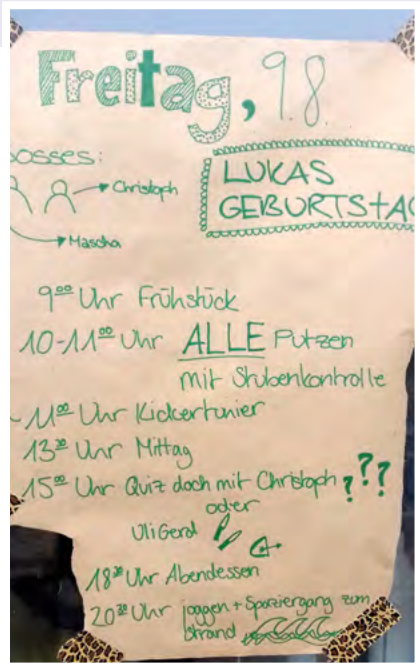 Freitag, 9.8.
osses:
Christoph
Mascha
LUKAS
GEBURTSTAG
9⁰⁰ Uhr Frühstück
10-11⁰⁰ Uhr ALLE Putzen
mit Stubenkontrolle
- 11⁰⁰ Uhr Kickerturnier
13³⁰ Uhr Mittag
15⁰⁰ Uhr Quiz doch mit Christoph ???
oder
Uli Gerd
18³⁰ Uhr Abendessen
20³⁰ Uhr joggen + Spaziergang zum
Strand